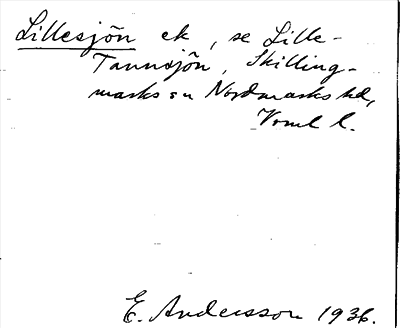 Lillesjön ek, se Lille-
Tannsjön, Skilling-
marks sn Nordmarks hd,
Vrml l.
E. Andersson 1936.